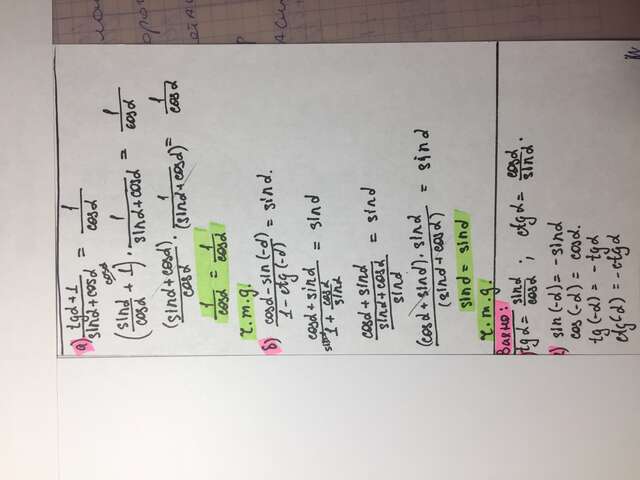 а) (tgα+1)/(sinα+cosα) = 1/cosα
(sinα/cosα + 1^cosα) · 1/(sinα+cosα) = 1/cosα
(sinα+cosα)/cosα · 1/(sinα+cosα) = 1/cosα
1/cosα = 1/cosα
ч.т.д.
б) (cosα-sin(-α))/(1-ctg(-α)) = sinα.
(cosα+sinα)/(^sinα 1 + cosα/sinα) = sinα
(cosα+sinα)/((sinα+cosα)/sinα) = sinα
((cosα+sinα)·sinα)/(sinα+cosα) = sinα
sinα = sinα
ч.т.д.
Важно:
tgα = sinα/cosα ; ctgα = cosα/sinα.
sin(-α) = -sinα
cos(-α) = cosα.
tg(-α) = -tgα
ctg(-α) = -ctgα